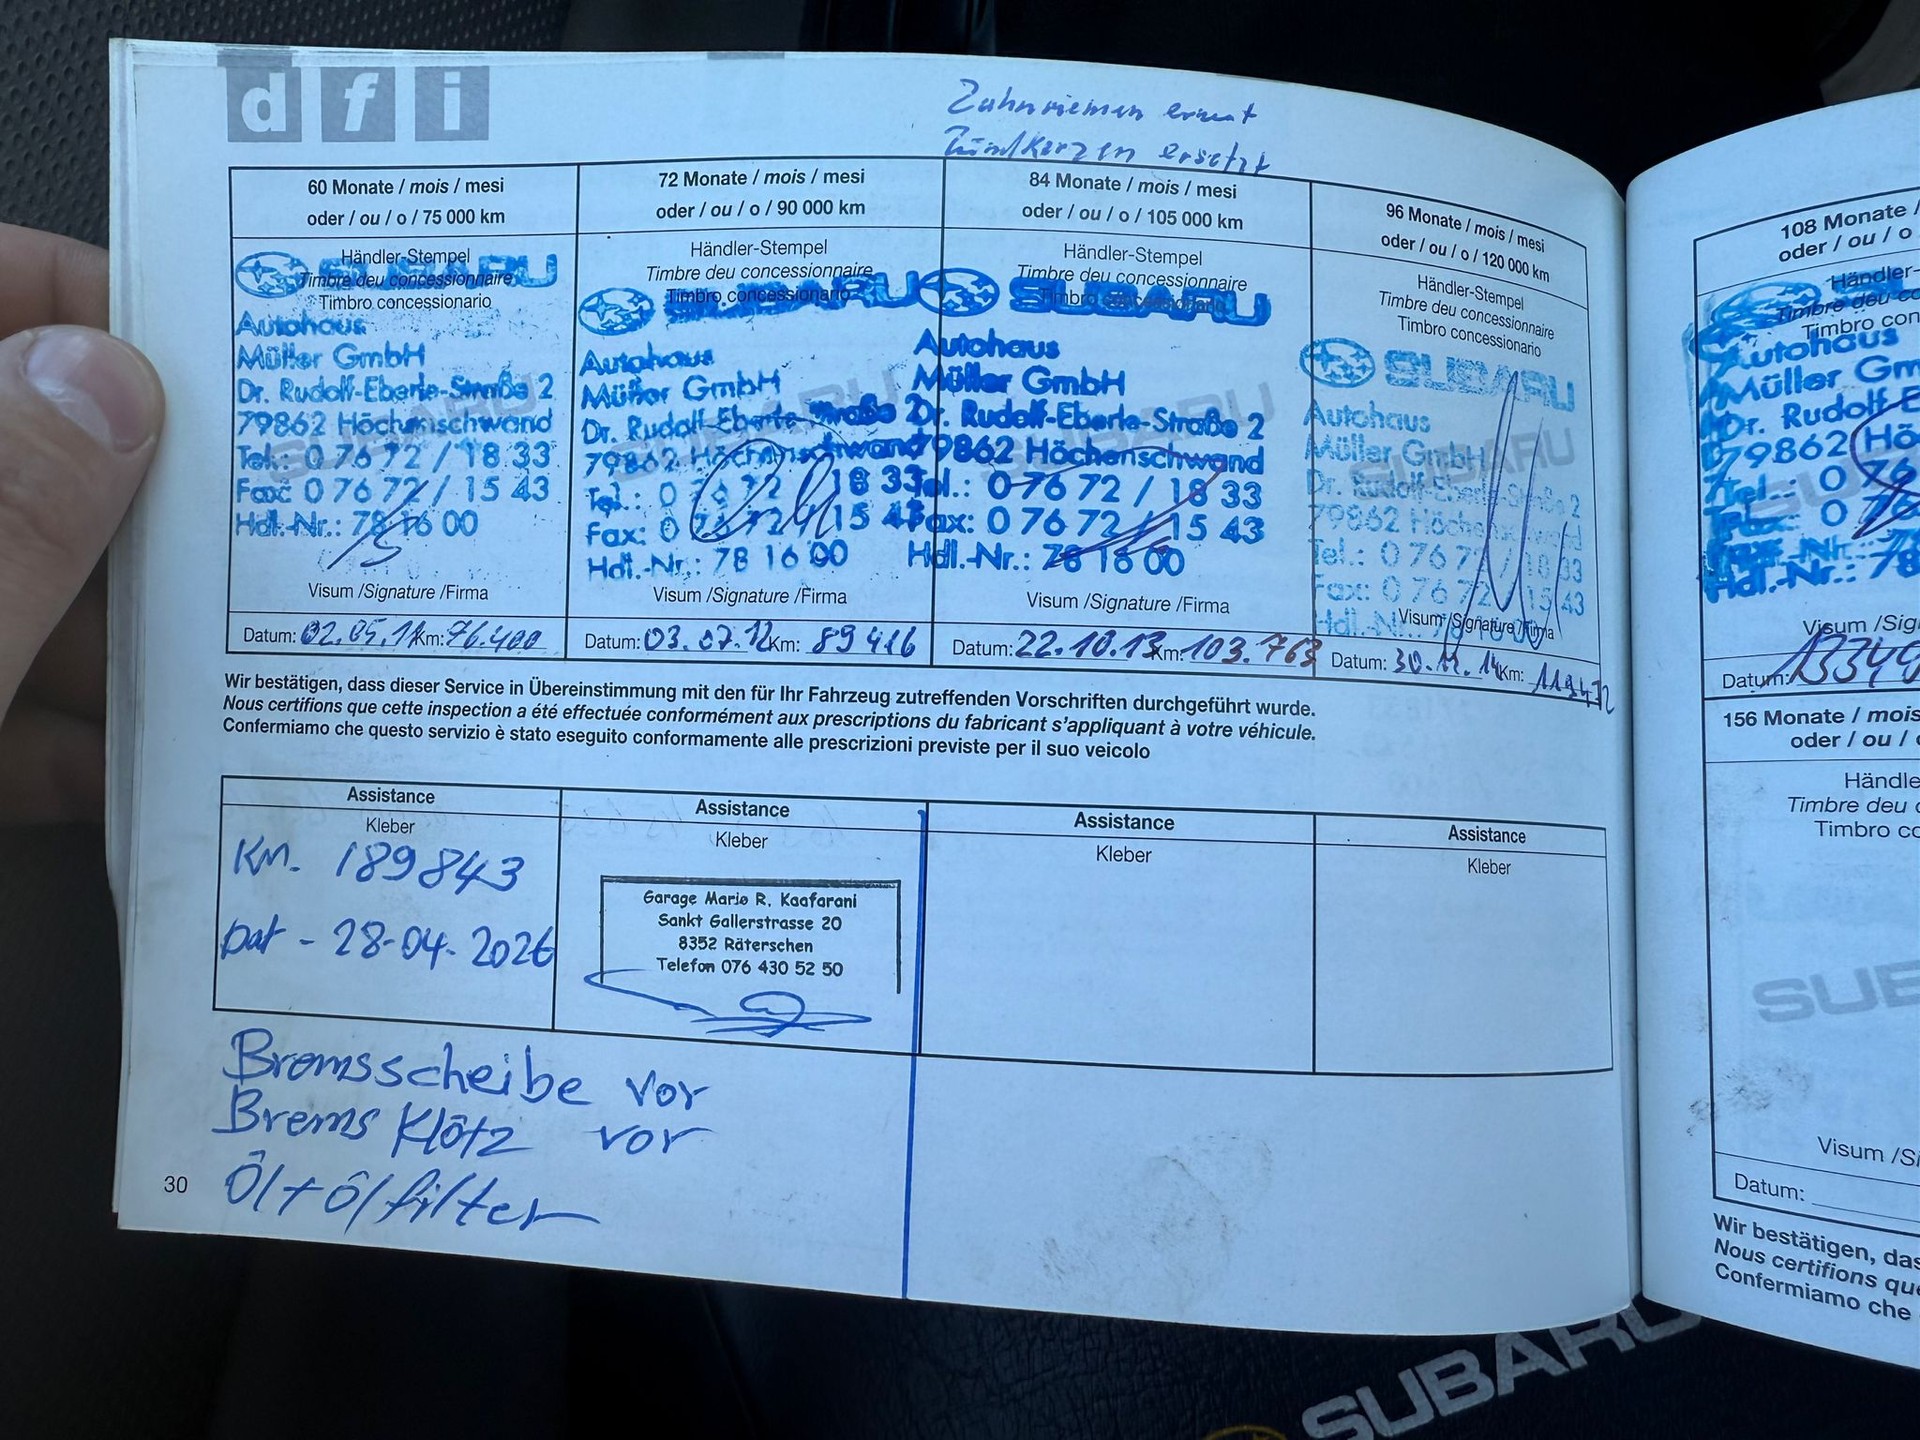 d f i
Zahnriemen erneut
Zündkerzen ersetzt
60 Monate / mois / mesi
oder / ou / o / 75 000 km
Händler-Stempel
Timbre deu concessionnaire
Timbro concessionario
SUBARU
Autohaus
Müller GmbH
Dr. Rudolf-Eberle-Straße 2
79862 Höchenschwand
Tel.: 0 76 72 / 18 33
Fax: 0 76 72 / 15 43
Hdl.-Nr.: 78 16 00
Visum /Signature /Firma
Datum: 02.05.11 Km: 76.400
72 Monate / mois / mesi
oder / ou / o / 90 000 km
Händler-Stempel
Timbre deu concessionnaire
Timbro concessionario
SUBARU
Autohaus
Müller GmbH
Dr. Rudolf-Eberle-Straße 2
79862 Höchenschwand
Tel.: 0 76 72 / 18 33
Fax: 0 76 72 / 15 43
Hdl.-Nr.: 78 16 00
Visum /Signature /Firma
Datum: 03.07.12 Km: 89 416
84 Monate / mois / mesi
oder / ou / o / 105 000 km
Händler-Stempel
Timbre deu concessionnaire
Timbro concessionario
SUBARU
Autohaus
Müller GmbH
Dr. Rudolf-Eberle-Straße 2
79862 Höchenschwand
Tel.: 0 76 72 / 18 33
Fax: 0 76 72 / 15 43
Hdl.-Nr.: 78 16 00
Visum /Signature /Firma
Datum: 22.10.13 Km: 103.763
96 Monate / mois / mesi
oder / ou / o / 120 000 km
Händler-Stempel
Timbre deu concessionnaire
Timbro concessionario
SUBARU
Autohaus
Müller GmbH
Dr. Rudolf-Eberle-Straße 2
79862 Höchenschwand
Tel.: 0 76 72 / 18 33
Fax: 0 76 72 / 15 43
Hdl.-Nr.: 78 16 00
Visum /Signature /Firma
Datum: Km:
Wir bestätigen, dass dieser Service in Übereinstimmung mit den für Ihr Fahrzeug zutreffenden Vorschriften durchgeführt wurde.
Nous certifions que cette inspection a été effectuée conformément aux prescriptions du fabricant s'appliquant à votre véhicule.
Confermiamo che questo servizio è stato eseguito conformamente alle prescrizioni previste per il suo veicolo
Assistance
Kleber
Km. 189843
Dat - 28-04-2026
Assistance
Kleber
Garage Mario R. Kaafarani
Sankt Gallerstrasse 20
8352 Räterschen
Telefon 076 430 52 50
Assistance
Kleber
Assistance
Kleber
Bremsscheibe vor
Brems Klötz vor
Öl + Ölfilter
30
108 Monate /
oder / ou / o
Händler-
Timbre deu co
Timbro con
Autohaus
Müller Gm
Dr. Rudolf-E
79862 Hö
Tel.: 0 76
Fax: 0 76
Hdl.-Nr.: 78
Visum /Sig
Datum: 13349
156 Monate / mois
oder / ou /
Händle
Timbre deu c
Timbro co
SUB
Visum /Si
Datum:
Wir bestätigen, das
Nous certifions que
Confermiamo che
SUBARU